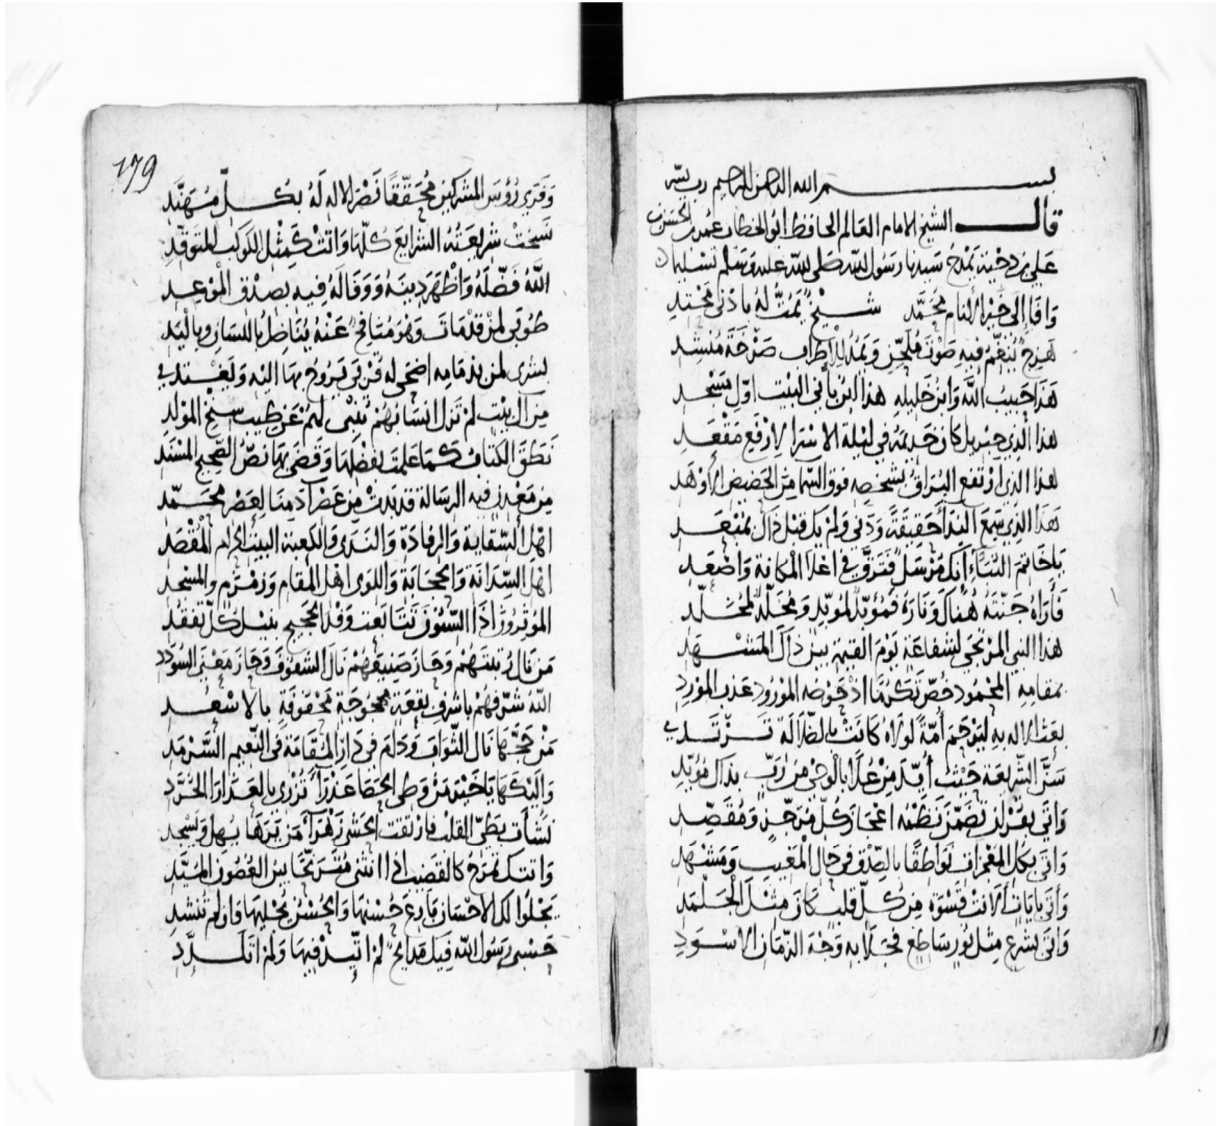 بسم الله الرحمن الرحيم رب يسر
قال الشيخ الامام العالم الحافظ ابو الخطاب عمر بن الحسن بن
علي بن دحية يمدح سيدنا رسول الله صلى الله عليه وسلم تسليما
وافا إلى خير الأنام محمد شيخ يمت له بأدنى محتد
هزج ينغم فيه صوت ملحن ويمد للاطراف صرخة منشد
هذا حبيب الله وابن خليله هذا ابن باني البيت اول مسجد
هذا الذي جبريل كان خديمه في ليلة الاسرا لارفع مقعد
هذا الذي ارتفع البراق بشخصه فوق السما من الحضيض الأوهد
هذا الذي سمع الندا حقيقة ودنى ولم يك قبل ذاك بمبعد
يا خاتم النبآء انك مرسل فترق في اعلا المكانة واصعد
فأراه جنته هناك وناره فمؤبد لمؤبد ومخلد لمخلد
هذا النبي المرتجى لشفاعة يوم القيمة بين ذاك المشهد
بمقامه المحمود خص تكرما اذ حوضه المورود عذب المورد
بعث الاله به ليرحم أمة لولاه كانت بالضلالة ترتدي
سن الشريعة حيث أيد من علا بالوحي من رب بذاك مؤيد
واتى بقران تضمن نظمه اعجاز كل مرجز ومقصد
واتى بكل المعجزات نواطقا بالصدق في حال المغيب ومشهد
وأتى بايات ألانت قسوة من كل قلب كان مثل الجلمد
واتى بشرع مثل نور ساطع فجلا به وجه الزمان الاسود
179
وفرى رؤس المشركين محققا نصر الاله له بكل مهند
نسخت شريعته الشرايع كلها واتت كمثل الكوكب المتوقد
الله فضله وأظهر دينه ووفا له فيه بصدق الموعد
طوبى لمن قد مات وهو منافح عنه يناضل باللسان وباليد
بشرى لمن بذمامه اضحى له قربى يروح بها اليه ويغتدي
من آل بيت لم تزل انسابهم تنمى لهم عن طيب سنخ المولد
نطق الكتاب كما علمت بفضلها وقضى بها نص الصحيح المسند
من معدن فيه الرسالة قد بدت من عصر آدمنا لعصر محمد
اهل السقاية والرفادة والندى والكعبة البيت الحرام المقصد
اهل السدانة والحجابة واللوى اهل المقام وزمزم والمسجد
المؤثرون اذا السنون تتابعت وفد الحجيج بنيل كل تفقد
من نال رتبتهم وحاز صنيعهم نال الشفوف وحاز معنى السودد
الله شرفهم باشرف بقعة محجوجة محفوفة بالاسعد
من حجها نال الثواب ودام في دار المقامة في النعيم السرمد
واليكها يا خير من وطي الحصا عذرآء تزري بالعذارا الخرد
نشأت بطي القلب وارتقت الحشى زهرآء من يرها يهل ويسجد
واتتك تمرح كالقضيب اذا انثنى مترنحا بين الغصون الميد
يجلوا لك الاحسان بارع حسنها والحسن يجليها وان لم تنشد
حسبي رسول الله فيك مدايح لم اتئد فيها ولم اتلدد